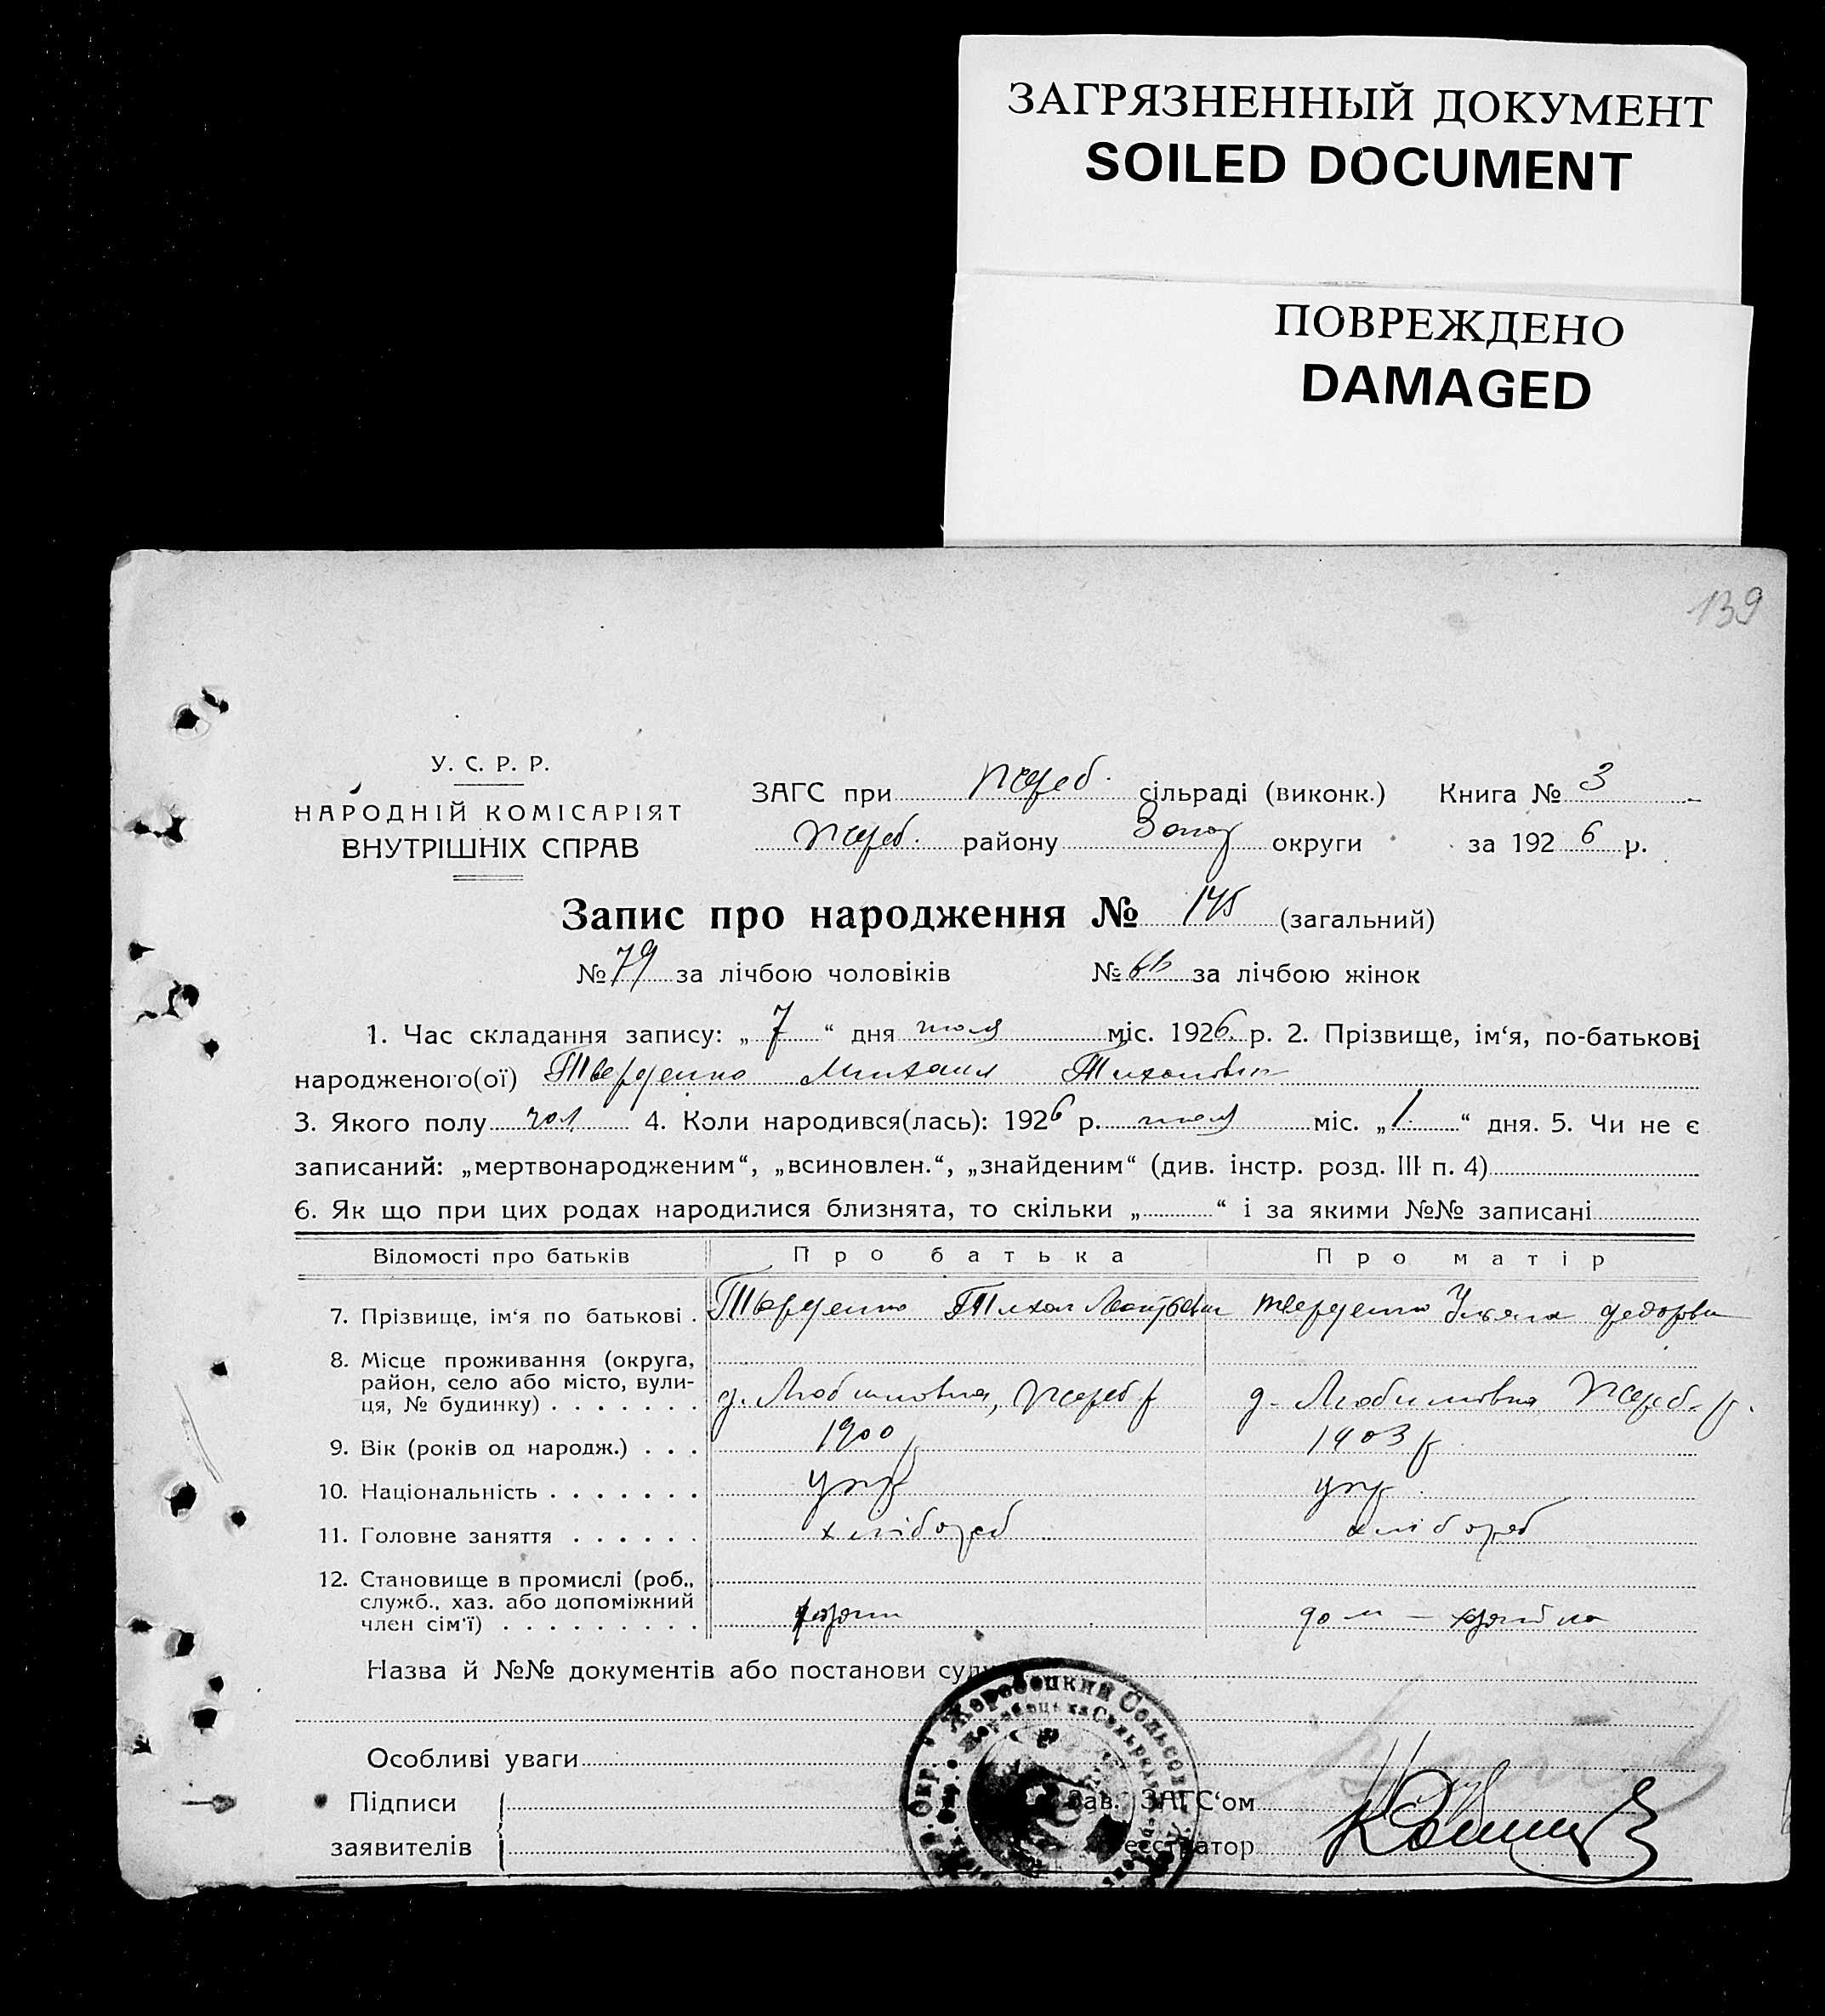 ЗАГРЯЗНЕННЫЙ ДОКУМЕНТ
SOILED DOCUMENT
ПОВРЕЖДЕНО
DAMAGED
139
У. С. Р. Р.
НАРОДНІЙ КОМІСАРІЯТ
ВНУТРІШНІХ СПРАВ
ЗАГС при Жереб. сільраді (виконк.) Книга № 3
Жереб. району Запор округи за 1926 р.
Запис про народження № 145 (загальний)
№ 79 за лічбою чоловіків № 66 за лічбою жінок
1. Час складання запису: „7“ дня июля міс. 1926 р. 2. Прізвище, ім‘я, по-батькові
народженого(ої) Тверденко Михаил Тихонович
3. Якого полу чол 4. Коли народився(лась): 1926 р. июля міс. „1“ дня. 5. Чи не є
записаний: „мертвонародженим“, „всиновлен.“, „знайденим“ (див. інстр. розд. III п. 4)
6. Як що при цих родах народилися близнята, то скільки „ “ і за якими №№ записані
Відомості про батьків Про батька Про матір
7. Прізвище, ім‘я по батькові . Тверденко Тихон Тверденко Ульяна Федоровн
8. Місце проживання (округа,
район, село або місто, вули-
ця, № будинку) . . . . . . . д. Любимовка, Жереб р д. Любимовка Жереб. р.
9. Вік (років од народж.) . . . 1900 р 1903 р
10. Національність . . . . . . . укр укр
11. Головне заняття . . . . . . хлібороб хлібороб
12. Становище в промислі (роб.,
служб., хаз. або допоміжний
член сім‘ї) . . . . . . . . . хозяин дом — хозяйка
Назва й №№ документів або постанови суду
Особливі уваги
Підписи
заявителів
Зав. ЗАГС‘ом
еєстратор
Жеребецкий Сельсов